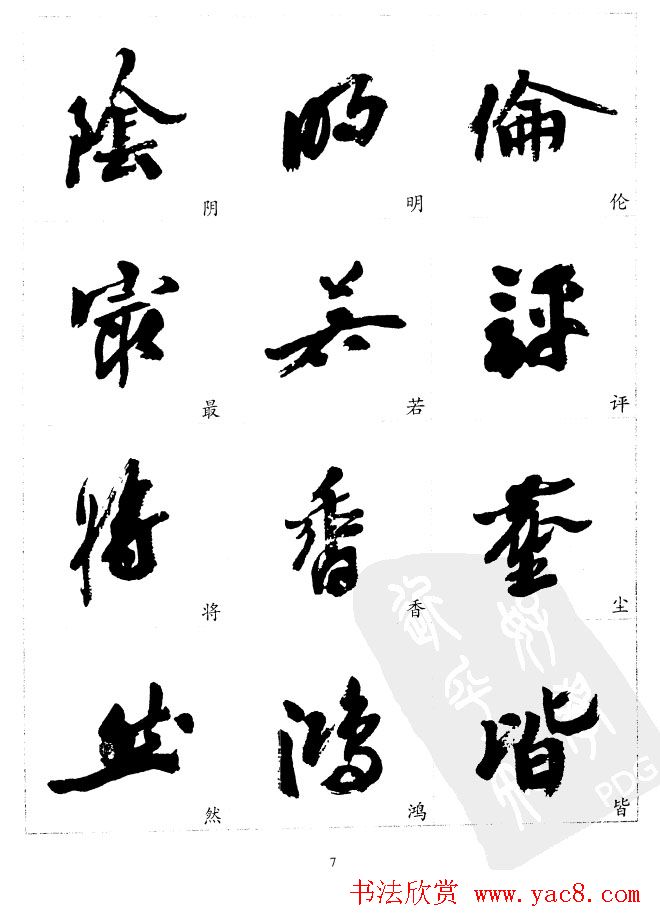 陰 明 倫
阴 明 伦
最 若 評
最 若 评
將 香 塵
将 香 尘
然 鴻 皆
然 鸿 皆
PDG
7
书法欣赏 www.yac8.com